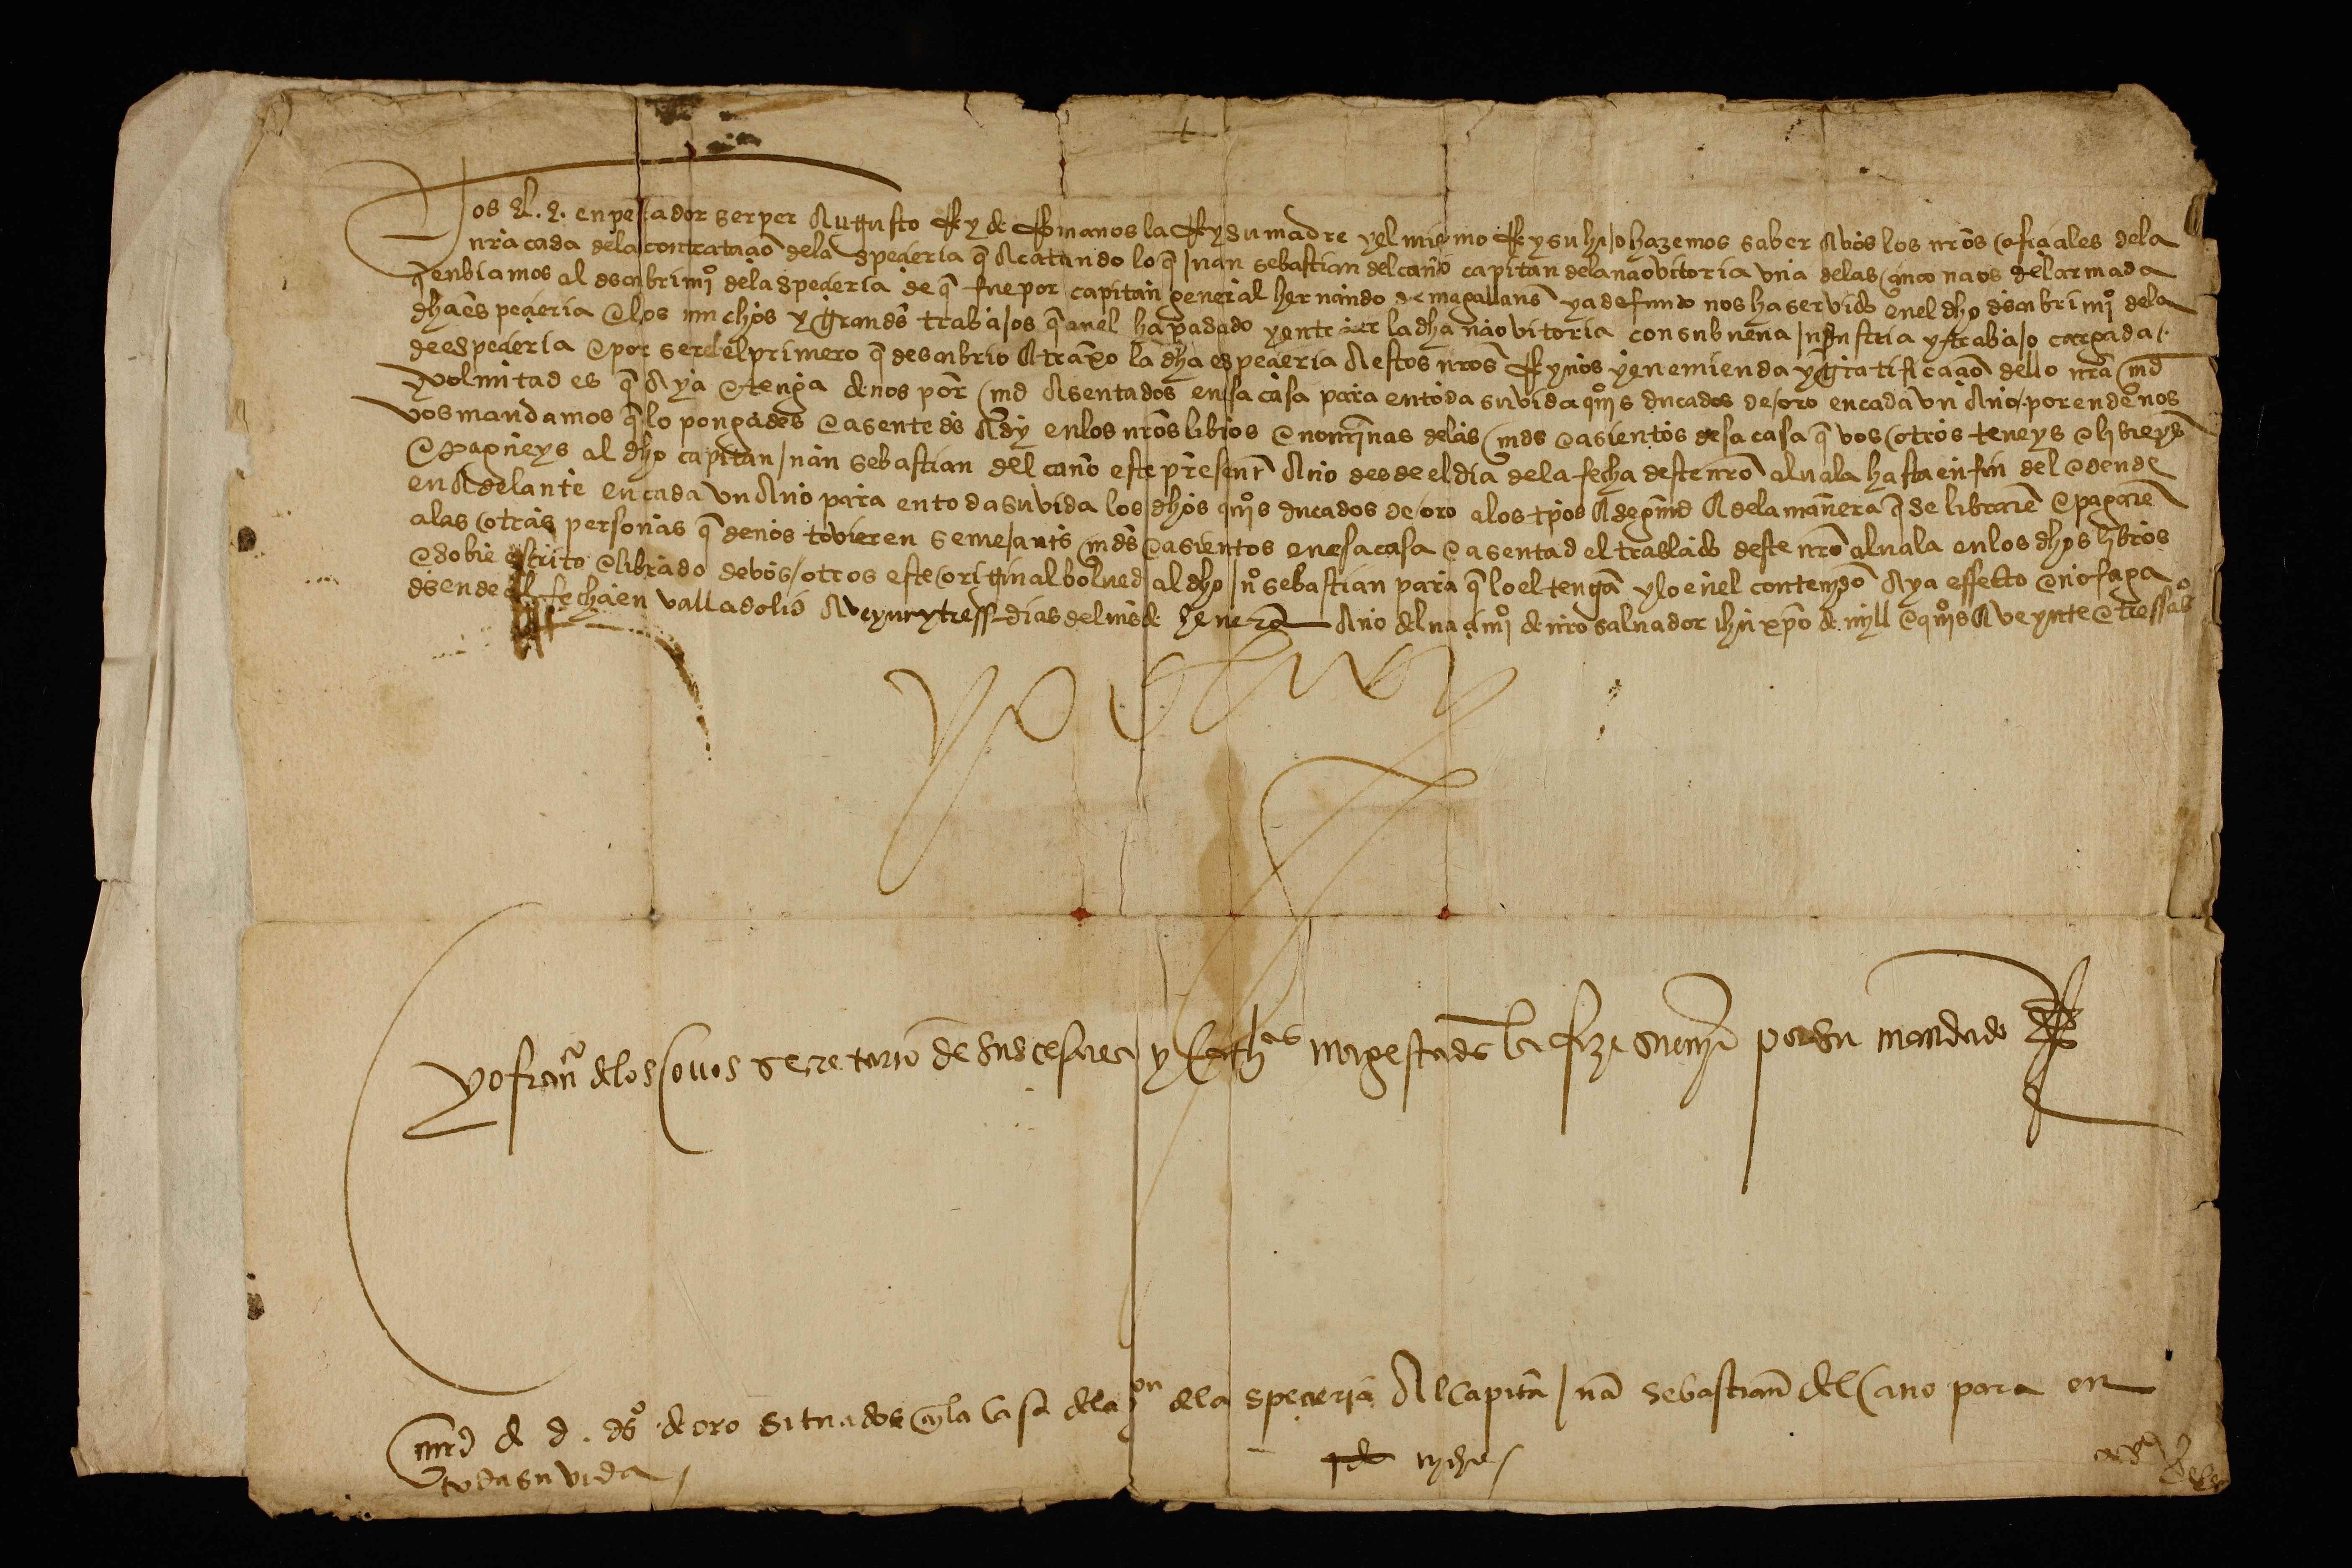 Nos el. e. enperador senper Augusto Rey de Romanos la Reyna su madre y el mismo Rey su hijo hazemos saber A vos los nros ofiçiales dela
nra casa dela contrataçió dela speçieria q̃ Acatando lo q̃ Juan sebastian del caño capitan dela nao vitoria una delas çinco naos del armada
q̃ enbiamos al descubrimiº dela speçieria de q̃ fue por capitan general hernando de magallans̃ ya defunto nos ha servido en el dho descubrimiº dela
dha espeçieria e los muchos y grandes trabajos q̃ en el ha pasado y en traer la dha nao vitoria con su buena industria y trabajo cargada
de espeçieria e por ser el primero q̃ descubrio A traxo la dha espeçieria A estos nros Reynos y en emienda y gratificaçió dello nra md
y voluntad es q̃ Aya e tenga de nos por md Asentados en sa casa para en toda su vida quiºs ducados de oro en cada un Año por ende nos
vos mandamos q̃ lo pongades e asentedes Asy en los nros libros e nominas delas mds e asientos desa casa q̃ vos otros teneys e libreys
e pagueys al dho capitan Juan sebastian del caño este presente Año desde el dia dela fecha deste nro aluala hasta en fin del e dende
en Adelante en cada un Año para en toda su vida los dhos quiºs ducados de oro a los tpos A segund A dela manera q̃ se librarẽ e pagarẽ
a las otras personas q̃ de nos tovieren semejants mds e asientos en esa casa e asentad el traslado deste nro aluala en los dhos libros
e sobre escrito e librado de vos otros este original bolued al dho juº sebastian para q̃ lo el tenga y lo en el contenydo Aya effetto e no faga
dsende al fecha en valladolid A veynt y tress dias del mes de henero Año del naçimiº de nro salvador ihu xpo de myll e quiºs A veynte e tress aºs
yo el Rey
yo franº delos Covos secretario de sus çesarea y Cathas magestades la fize screuir por su mandado
md de d. dsº de oro situados en la Casa dela con dela speçieria Al Capitã Juã sebastian del Cano para en
toda su vida